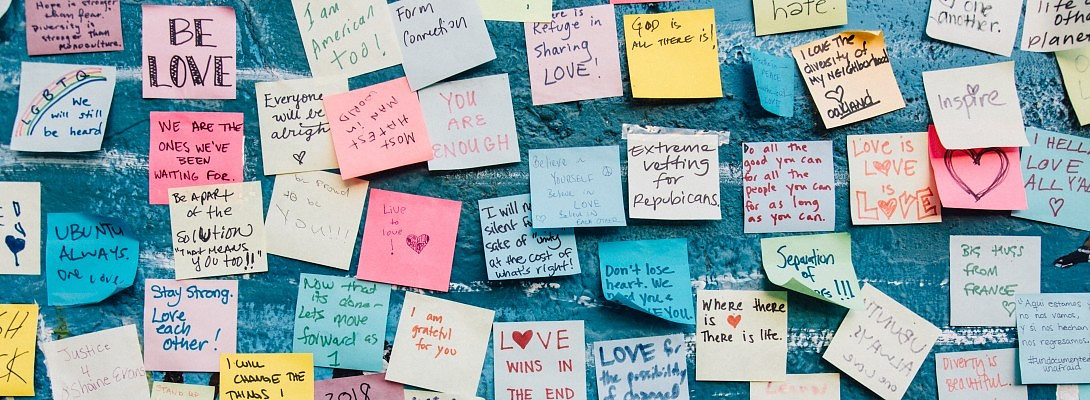 Hope is stronger
than fear.
Diversity is
stronger than
monoculture.
BE
LOVE
I am
American
too!
Form
Connection
Refuge in
sharing
LOVE!
GOD is
ALL THERE IS!
hate.
I LOVE THE
diversity OF
MY NEIGHBORHOOD
OAKLAND
another.
life
other
planet
LGBTQ
We
will still
be heard
Everyone
will be
alright
MOST
HATED
MAN in
YOU
ARE
ENOUGH
PEACE
Inspire
WE ARE THE
ONES WE'VE
BEEN
WAITING FOR.
Believe in
YOURSELF
Believe in
LOVE
Believe in
EACH OTHER
Extreme
vetting
for
Republicans.
Do all the
good you can
for all the
people you can
for as long
as you can.
Love is
LOVE is
LOVE
I HELLA
LOVE
ALL YA
UBUNTU
ALWAYS.
One Love
Be APART
of the
SOLUTION
"That MEANS
YOU TOO!!"
be proud
of
You!!!
Live
to
love
!
I will not
silent for
sake of unity
at the cost of
what's right!
Don't lose
heart. We
need you &
LOVE YOU.
Separation
of
!!!
BIG HUGS
FROM
FRANCE
Stay Strong.
Love
each
other!
Now that
its done
Lets move
forward as
1
I am
grateful
for you
LOVE
WINS IN
THE END
LOVE
the possibility
of
Where there
is
There is life.
UBUNTU
ALWAYS
One Love
Aqui estamos
no nos vamos,
y si nos hechan
nos regresamos.
#undocumented
unafraid
Justice
4
I WILL
CHANGE THE
THINGS I
STAND UP
2018
Diverty is
Beautiful.